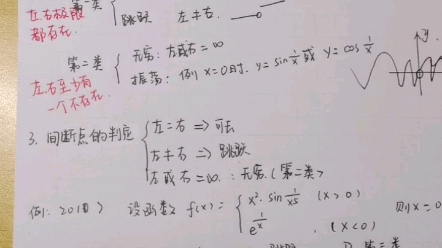 第一类
左右极限
都存在.
跳跃 左≠右.
第二类
无穷: 左或右 = ∞
振荡: 例 x=0时. y = sin 1/x 或 y = cos 1/x
左右至少有
一个不存在.
y
3. 间断点的判定
左=右 => 可去
左≠右 => 跳跃
左或右=∞. : 无穷. (第二类)
设函数 f(x) =
x²· sin 1/x⁵ (x>0)
e^(1/x) , (x<0)
则 x=0